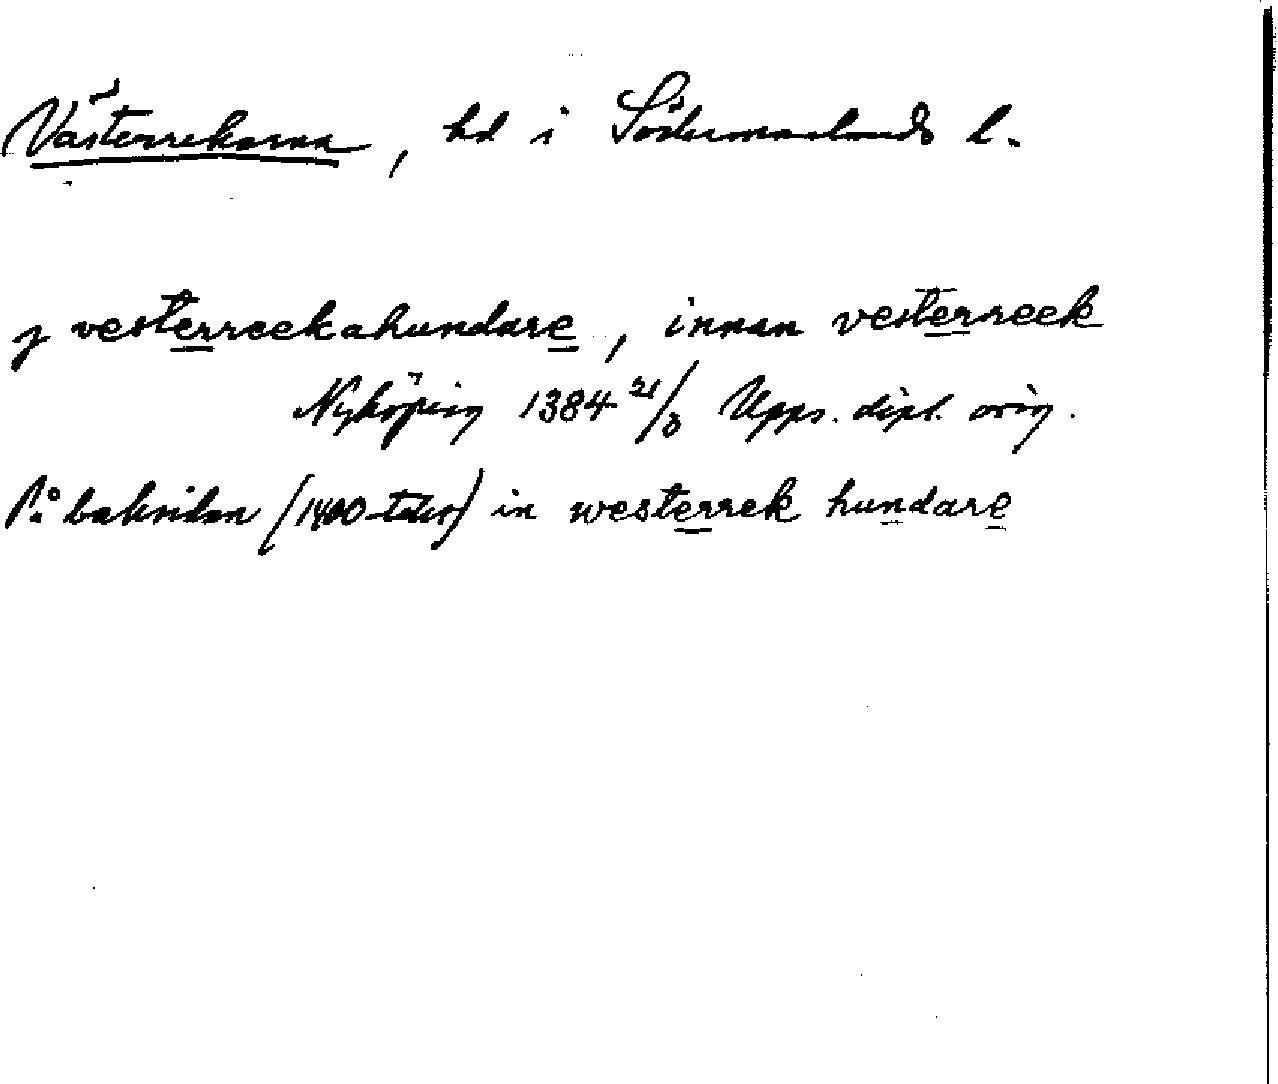 Västerrekarna, hd i Södermanlands l.
j vesterreekahundare, innan vesterreek
Nyköping 1384 21/8 Upps. dipl. orig.
På baksidan (1400-talet) in westerrek hundare